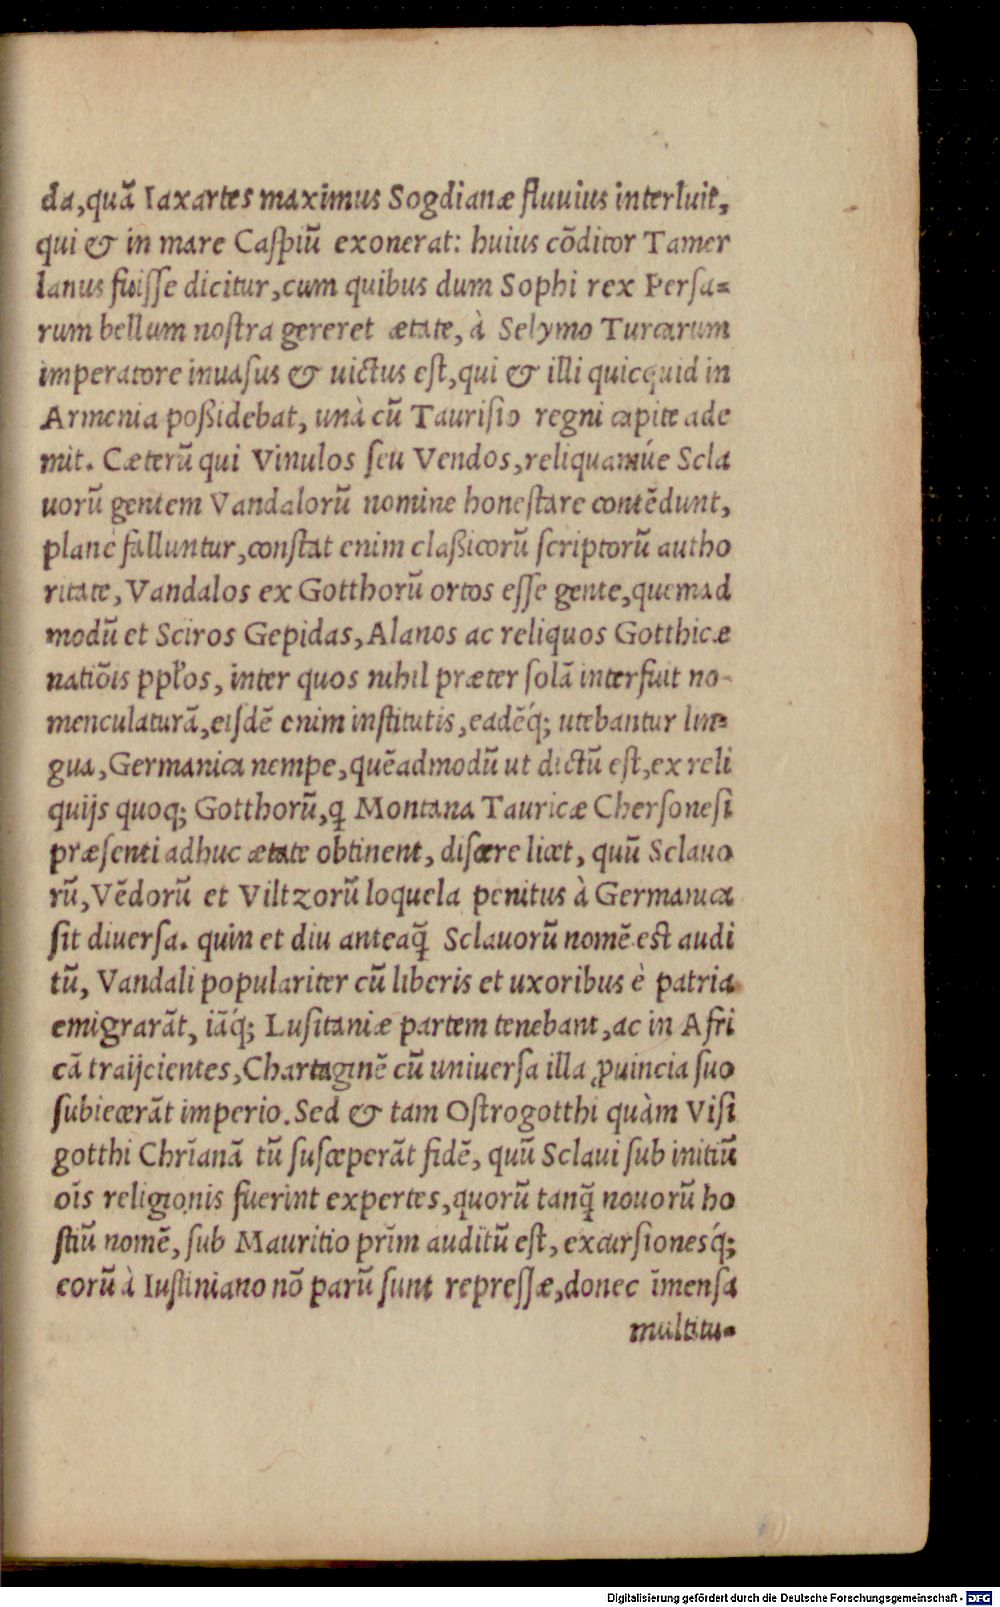 da,quā Iaxartes maximus Sogdianæ fluuius interluit,
qui & in mare Caſpiū exonerat: huius cōditor Tamer
lanus fuiſſe dicitur,cum quibus dum Sophi rex Perſa=
rum bellum noſtra gereret ætate, à Selymo Turcarum
imperatore inuaſus & uictus eſt,qui & illi quicquid in
Armenia poßidebat, unà cū Tauriſio regni capite ade
mit. Cæterū qui Vinulos ſeu Vendos,reliquamúe Scla
uorū gentem Vandalorū nomine honeſtare contēdunt,
planè falluntur,conſtat enim claßicorū ſcriptorū autho
ritate, Vandalos ex Gotthorū ortos eſſe gente,quemad
modū et Sciros Gepidas, Alanos ac reliquos Gotthicæ
natiōis pp̄los, inter quos nihil præter ſolā interfuit no-
menculaturā,eiſdē enim inſtitutis,eadēq́; utebantur lin=
gua,Germanica nempe,quēadmodū ut dictū eſt,ex reli
quijs quoq; Gotthorū,q̨ Montana Tauricæ Cherſoneſi
præſenti adhuc ætate obtinent, diſcere licet, quū Sclauo
rū,Vēdorū et Viltzorū loquela penitus à Germanica
ſit diuerſa. quin et diu anteaq̄ Sclauorū nomē eſt audi
tū, Vandali populariter cū liberis et uxoribus è patria
emigrarāt, iāq́; Luſitaniæ partem tenebant,ac in Afri
cā traijcientes,Chartaginē cū uniuerſa illa ꝓuincia ſuo
ſubiecerāt imperio.Sed & tam Oſtrogotthi quàm Viſi
gotthi Chrīanā tū ſuſceperāt fidē, quū Sclaui ſub initiū
oīs religionis fuerint expertes,quorū tanq̄ nouorū ho
ſtiū nomē, ſub Mauritio prīm auditū eſt, excurſionesq́;
eorū à Iuſtiniano nō parū ſunt repreſſæ,donec īmenſa
multitu=
Digitalisierung gefördert durch die Deutsche Forschungsgemeinschaft - DFG